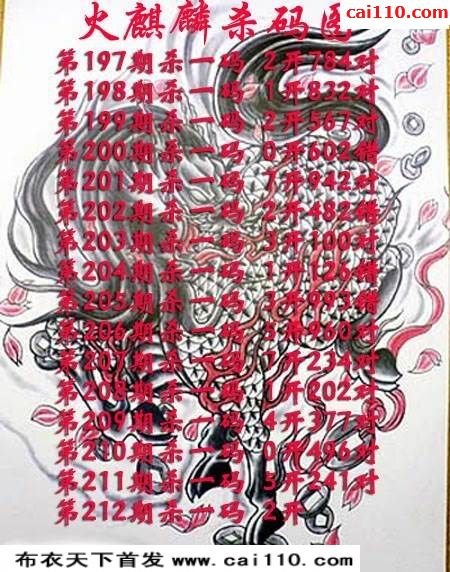 cai110.com
火麒麟杀码图
第197期杀一码 2开784对
第198期杀一码 1开832对
第199期杀一码 2开567对
第200期杀一码 0开602错
第201期杀一码 7开942对
第202期杀一码 2开482错
第203期杀一码 3开100对
第204期杀一码 1开126错
第205期杀一码 3开993错
第206期杀一码 5开960对
第207期杀一码 7开234对
第208期杀一码 1开202对
第209期杀一码 4开377对
第210期杀一码 0开496对
第211期杀一码 5开241对
第212期杀一码 2开
布衣天下首发 www.cai110.com